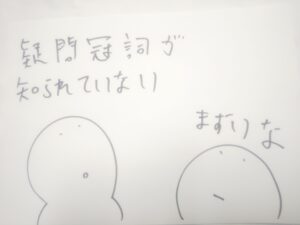 疑問冠詞が
知られていない
まずいな